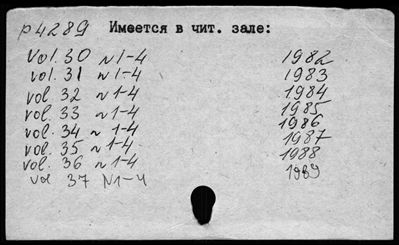 р4289 Имеется в чит. зале:
Vol. 30 n 1-4 1982
vol. 31 n 1-4 1983
vol. 32 n 1-4 1984
vol. 33 n 1-4 1985
vol. 34 n 1-4 1986
vol. 35 n 1-4 1987
vol. 36 n 1-4 1988
vol 37 N1-4 1989